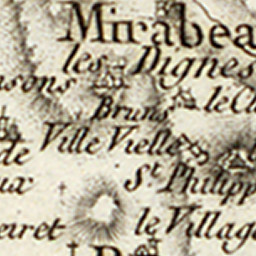 Mirabea
les Dignes
sons
Bruns
le Ch
Ville Vielle
de
ux
St. Philipp
eiret
le Villag